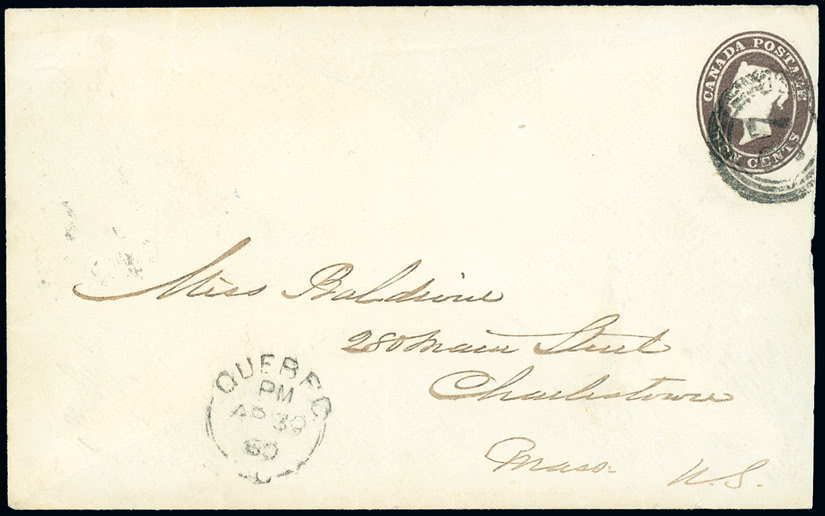 CANADA POSTAGE
TEN CENTS
Miss Baldwine
280 Main Street
Charlestown
Mass. U.S.
QUEBEC
PM
AP 30
60